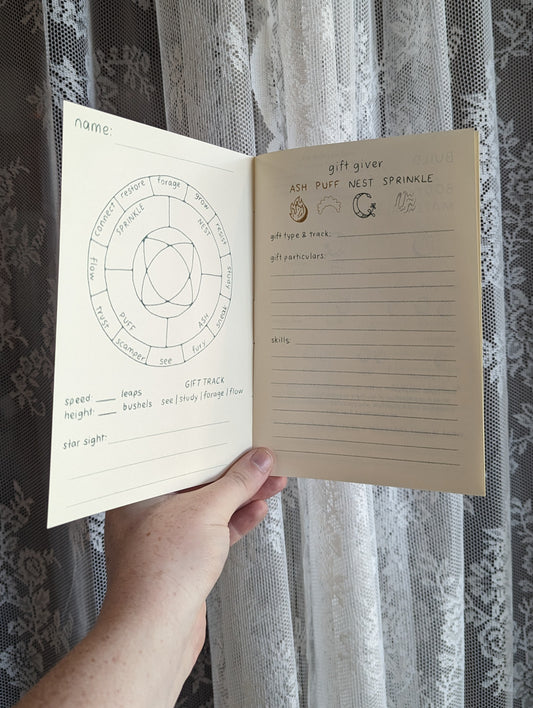 name:
restore
forage
grow
resist
study
focus
fury
see
scamper
trust
flow
connect
SPRINKLE
NEST
ASH
PUFF
GIFT TRACK
speed: ____ leaps
height: ____ bushels
see | study | forage | flow
star sight:
gift giver
ASH PUFF NEST SPRINKLE
gift type & track:
gift particulars:
skills:
BUILD